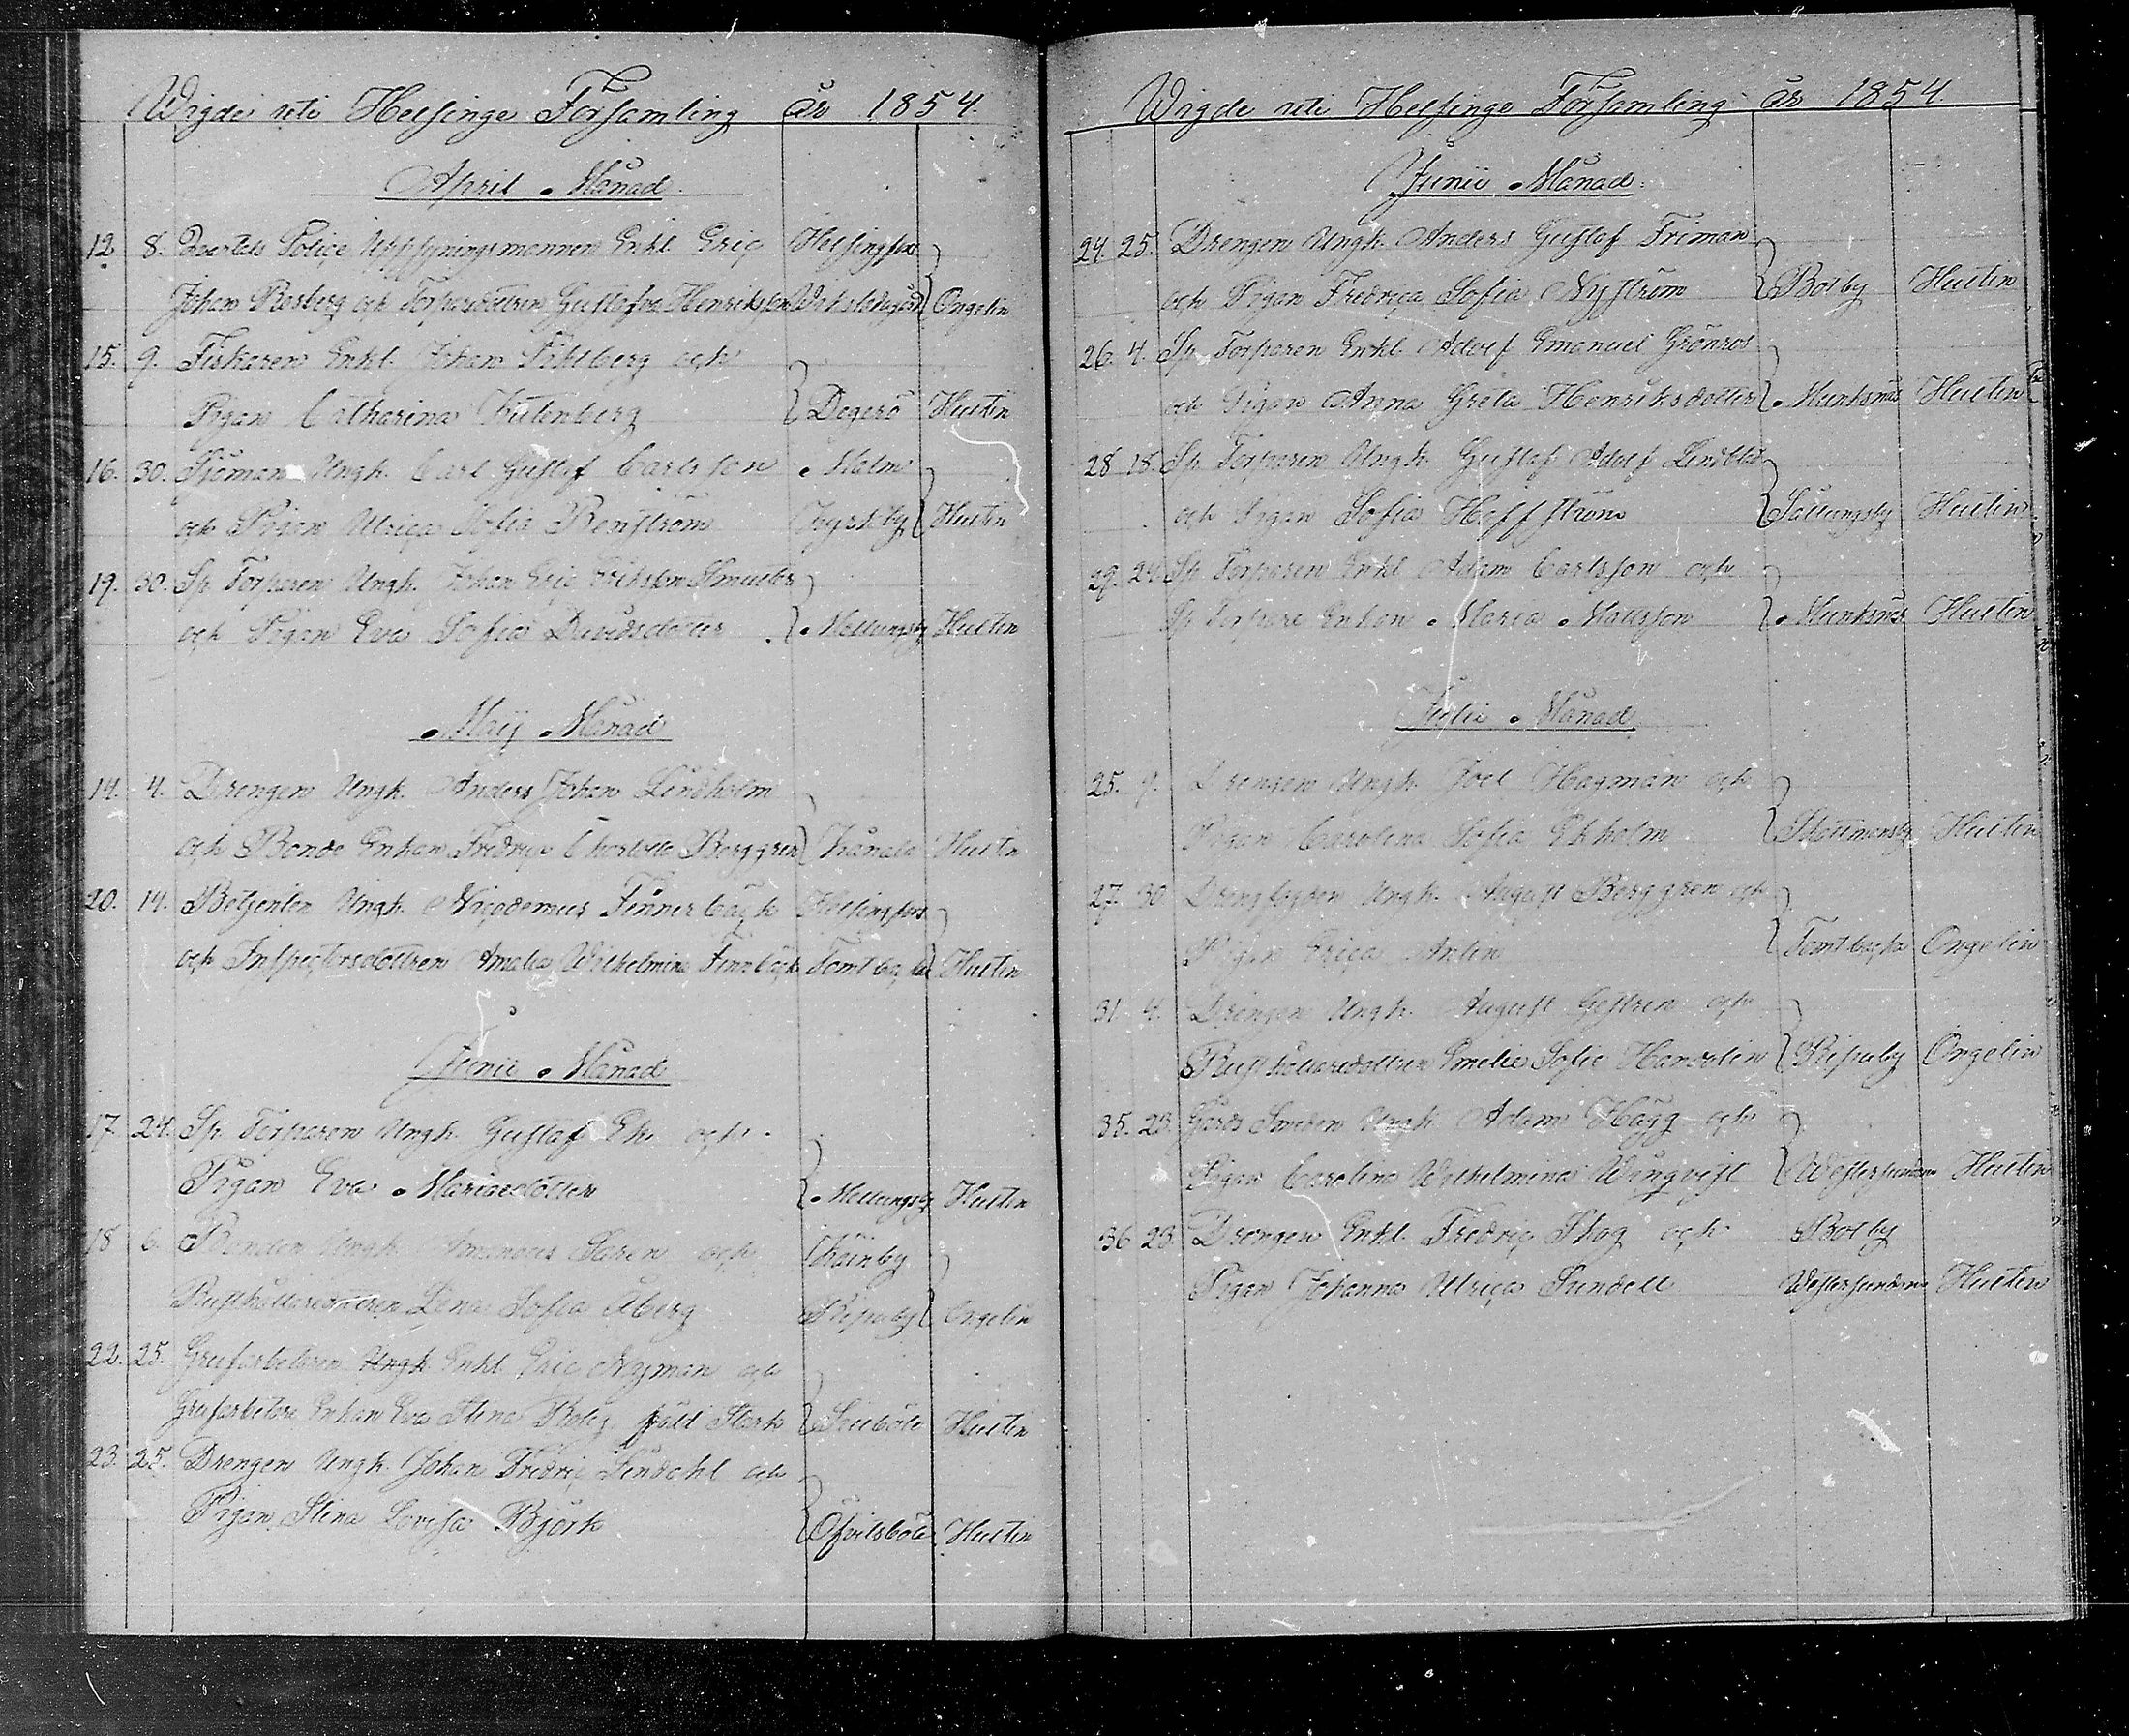 Wigde uti Helsinge Församling år 1854.
April Månad.
12. 8. Qvarters Police Uppsyningsmannen Enkl. Eric Helsingfors
Johan Rosberg och Torparedottren Gustafva Henriksson Wiksladegård Ongelin
15. 9. Fiskaren Enkl. Johan Fihlberg och
Pigan Catharina Degerö Hultin
16. 30. Sjöman Ungk. Carl Gustaf Carlsson Malm
och Pigan Ulrica Sofia Renström Kyrkby Hultin
19. 30. Sp. Torparen Ungk. Johan Eric Eriksson
och Pigan Eva Sofia Davidsdotter Mellungsby Hultin
Maij Månad
14. 4. Drengen Ungk. Anders Johan Lindholm
och Bonde Enkan Fredrica Charlotta Berggren Kånala Hultin
20. 14. Betjenten Ungk. Nicodemus Finnerbäck Helsingfors
och Inspectorsdottren Amalia Wilhelmina Finnbäck Tomtbacka Hultin
Junii Månad
17. 24. Sp. Torparen Ungk. Gustaf Ek och
Pigan Eva Mariaedotter Mellungsby Hultin
18 6. Bonden Ungk. Saren och
Rusthållaredottren Lena Sofia Åberg Ripuby Ongelin
22. 25. Grufarbetaren Ungk. Enkl. Eric Nyman och
Grufarbetare Enkan Eva Stina född Stark Hultin
23. 25. Drengen Ungk. Johan Fredric Lindahl och
Pigan Stina Lovisa Björk Öfvitsböle Hultin
Wigde uti Helsinge Församling år 1854.
Junii Månad.
24. 25. Drengen Ungk. Anders Gustaf Friman
och Pigan Fredrica Sofia Nyström Botby Hultin
26. 4. Sp. Torparen Enkl. Adolf Emanuel Grönros
och Pigan Anna Greta Henriksdotter Munksnäs Hultin
28 18. Sp. Torparen Ungk. Gustaf Adolf Lindblad
och Pigan Sofia Hoffström Hultin
29. 24. Sp. Torparen Enkl. Adam Carlsson och
Sp. Torpare Enkan Maria Mattsson Munksnäs Hultin
Julii Månad
25. 9. Drengen Ungk. Joel Hagman och
Pigan Carolina Sofia Ekholm Skattmansby Hultin
27. 30 Ungk. August Berggren och
Pigan Erica Antin Tomtbacka Ongelin
31 4. Drengen Ungk. August Gestrin och
Rusthållaredottren Emelie Sofie Handolin Ripuby Ongelin
35. 23. Gårds Smeden Ungk. Adam Hägg och
Pigan Carolina Wilhelmina Wingvist Westersundom Hultin
36 23. Drengen Enkl. Fredric Skog och Botby
Pigan Johanna Ulrica Sundell Westersundom Hultin